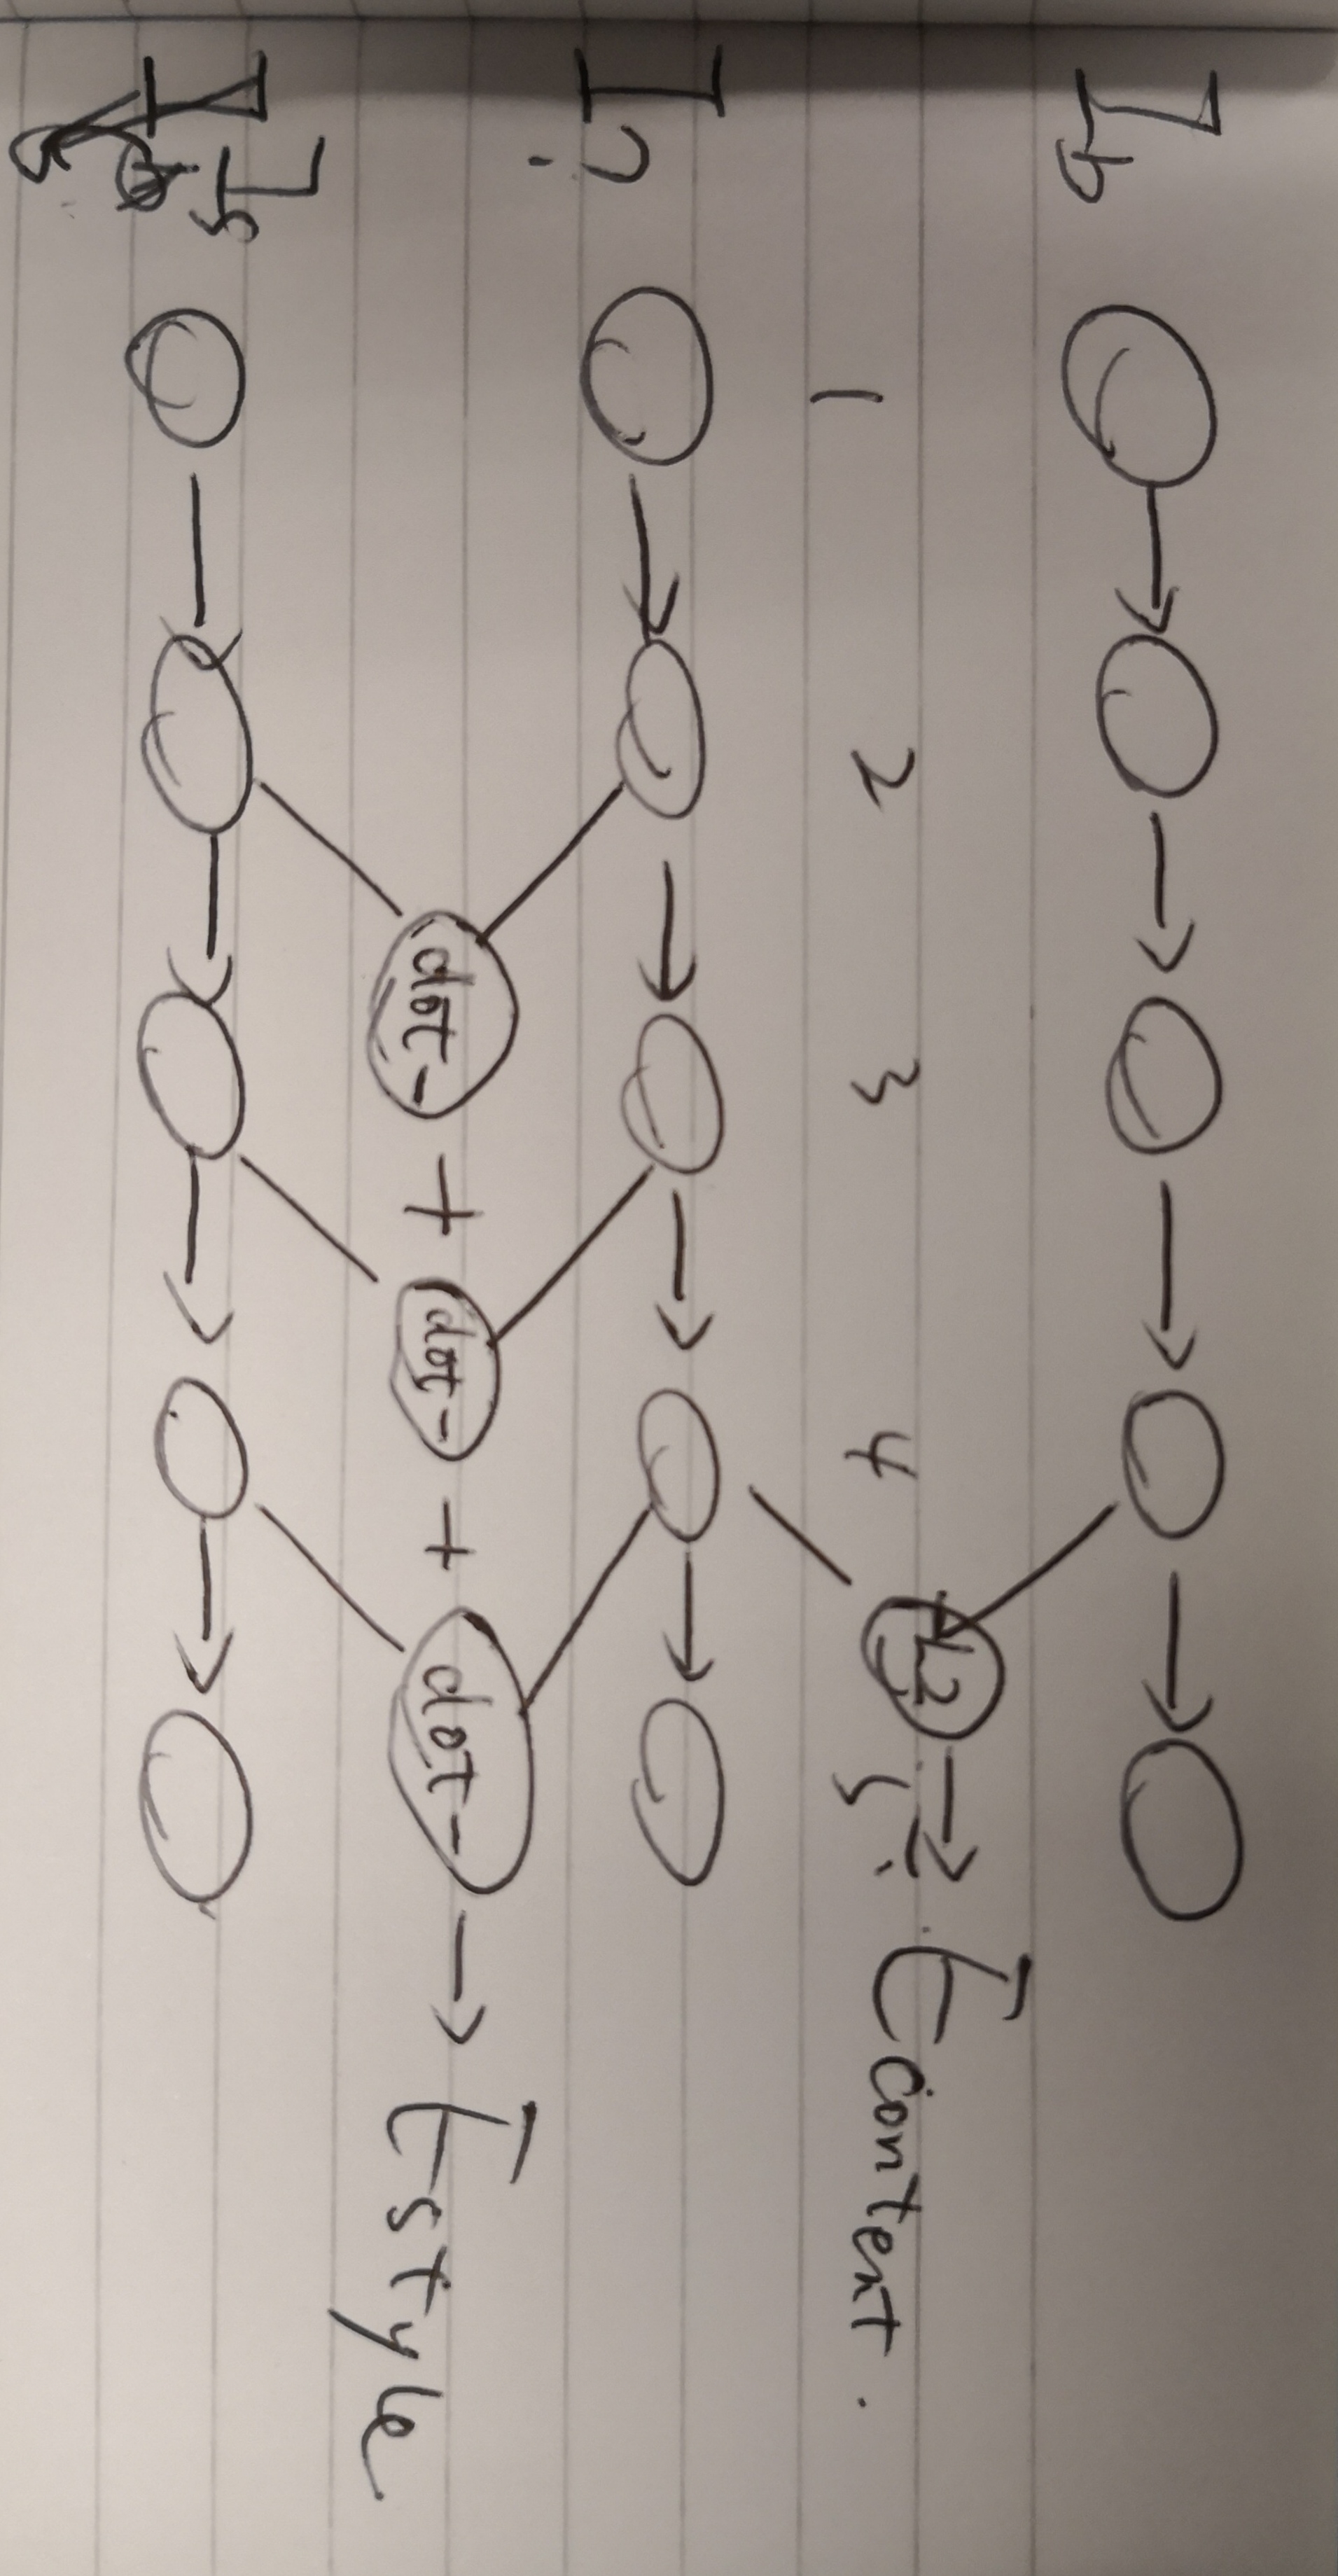 I_b
L2 → E_content.
1 2 3 4 5
I_?
dot- + dot- + dot- → E_style
I_s